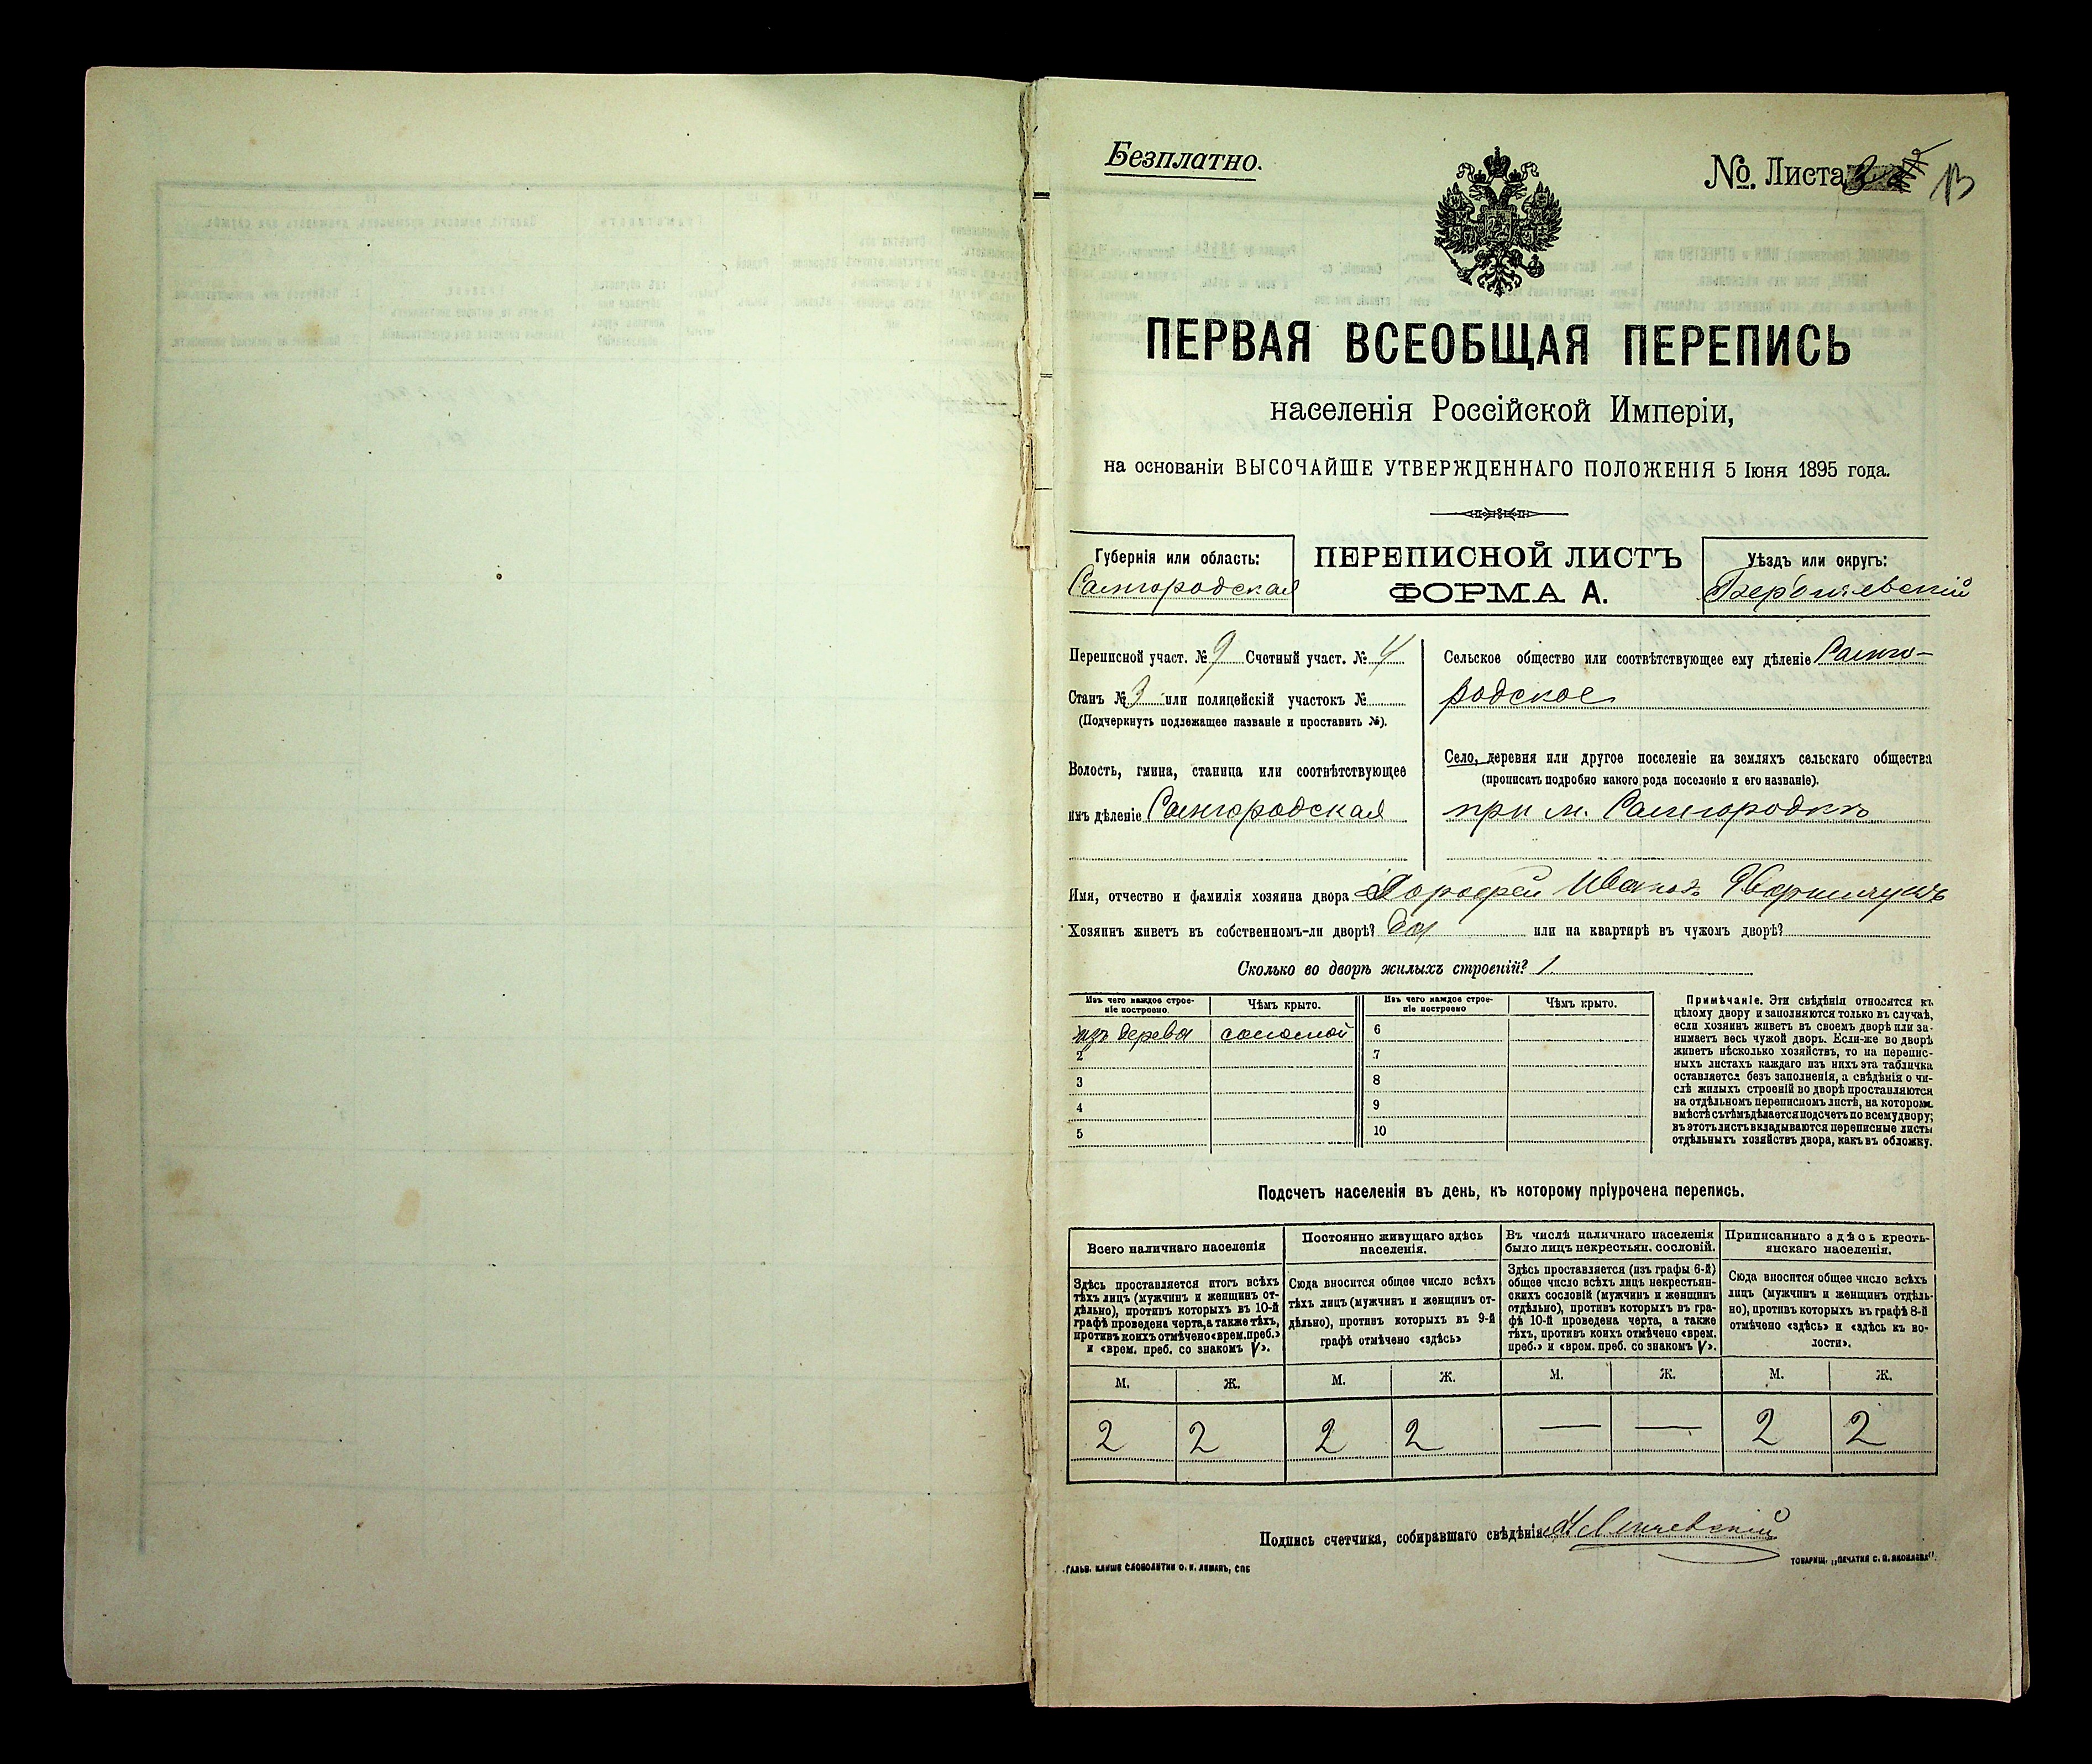 Безплатно.
№. Листа 13
ПЕРВАЯ ВСЕОБЩАЯ ПЕРЕПИСЬ
населенія Россійской Имперіи,
на основаніи ВЫСОЧАЙШЕ УТВЕРЖДЕННАГО ПОЛОЖЕНІЯ 5 Іюня 1895 года.
Губернія или область:
Самгородская
ПЕРЕПИСНОЙ ЛИСТЪ
ФОРМА А.
Уѣздъ или округъ:
Бердичевскій
Переписной участ. № 9 Счетный участ. № 4
Станъ № 3 или полицейскій участокъ №
(Подчеркнуть подлежащее названіе и проставить №).
Волость, гмина, станица или соотвѣтствующее
имъ дѣленіе Самгородская
Сельское общество или соотвѣтствующее ему дѣленіе Самго-
родское
Село, деревня или другое поселеніе на земляхъ сельскаго общества
(прописать подробно какого рода поселеніе и его названіе).
при м. Самгородкѣ
Имя, отчество и фамилія хозяина двора Дорофей Ивановъ
Хозяинъ живетъ въ собственномъ-ли дворѣ? да или на квартирѣ въ чужомъ дворѣ?
Сколько во дворѣ жилыхъ строеній? 1
Изъ чего каждое строе-
ніе построено.
Чѣмъ крыто.
Изъ чего каждое строе-
ніе построено
Чѣмъ крыто.
изъ дерева соломой 6
2 7
3 8
4 9
5 10
Примѣчаніе. Эти свѣдѣнія относятся къ
цѣлому двору и заполняются только въ случаѣ,
если хозяинъ живетъ въ своемъ дворѣ или за-
нимаетъ весь чужой дворъ. Если-же во дворѣ
живетъ нѣсколько хозяйствъ, то на перепис-
ныхъ листахъ каждаго изъ нихъ эта табличка
оставляется безъ заполненія, а свѣдѣнія о чи-
слѣ жилыхъ строеній во дворѣ проставляются
на отдѣльномъ переписномъ листѣ, на которомъ
вмѣстѣ съ тѣмъ дѣлается подсчетъ по всему двору;
въ этотъ листъ вкладываются переписные листы
отдѣльныхъ хозяйствъ двора, какъ въ обложку.
Подсчетъ населенія въ день, къ которому пріурочена перепись.
Всего наличнаго населенія
Постоянно живущаго здѣсь
населенія.
Въ числѣ наличнаго населенія
было лицъ некрестьян. сословій.
Приписаннаго здѣсь кресть-
янскаго населенія.
Здѣсь проставляется итогъ всѣхъ
тѣхъ лицъ (мужчинъ и женщинъ от-
дѣльно), противъ которыхъ въ 10-й
графѣ проведена черта, а также тѣхъ,
противъ коихъ отмѣчено «врем. преб.»
и «врем. преб. со знакомъ V».
Сюда вносится общее число всѣхъ
тѣхъ лицъ (мужчинъ и женщинъ от-
дѣльно), противъ которыхъ въ 9-й
графѣ отмѣчено «здѣсь»
Здѣсь проставляется (изъ графы 6-й)
общее число всѣхъ лицъ некрестьян-
скихъ сословій (мужчинъ и женщинъ
отдѣльно), противъ которыхъ въ гра-
фѣ 10-й проведена черта, а также
тѣхъ, противъ коихъ отмѣчено «врем.
преб.» и «врем. преб. со знакомъ V».
Сюда вносится общее число всѣхъ
лицъ (мужчинъ и женщинъ отдѣль-
но), противъ которыхъ въ графѣ 8-й
отмѣчено «здѣсь» и «здѣсь къ во-
лости».
М. Ж. М. Ж. М. Ж. М. Ж.
2 2 2 2 — — 2 2
Подпись счетчика, собиравшаго свѣдѣнія
ГАЛЬВ. КЛИШЕ СЛОВОЛИТНИ О. И. ЛЕМАНЪ, СПБ
ТОВАРИЩ. „ПЕЧАТНЯ С. П. ЯКОВЛЕВА".